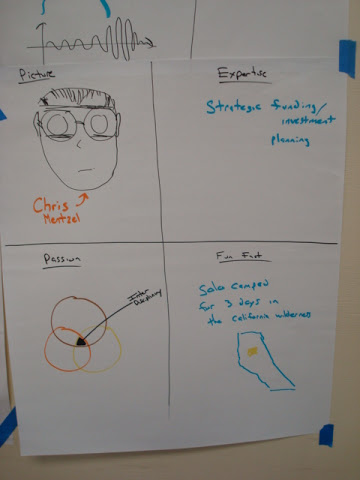 Picture
Expertise
Strategic funding/
investment
planning
Chris
Mentzel
Passion
Inter
Disciplinary
Fun Fact
Solo camped
for 3 days in
the California wilderness